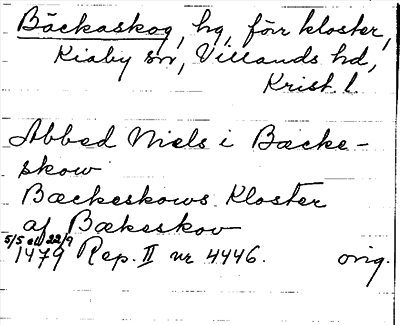 Bäckaskog, hg, förr kloster,
Kiaby sn, Villands hd,
Krist. l.
Abbed Niels i Bæcke-
skow
Bæckeskows Kloster
af Bækeskov
5/5 el. 22/9
1479 Rep. II nr 4446. orig.